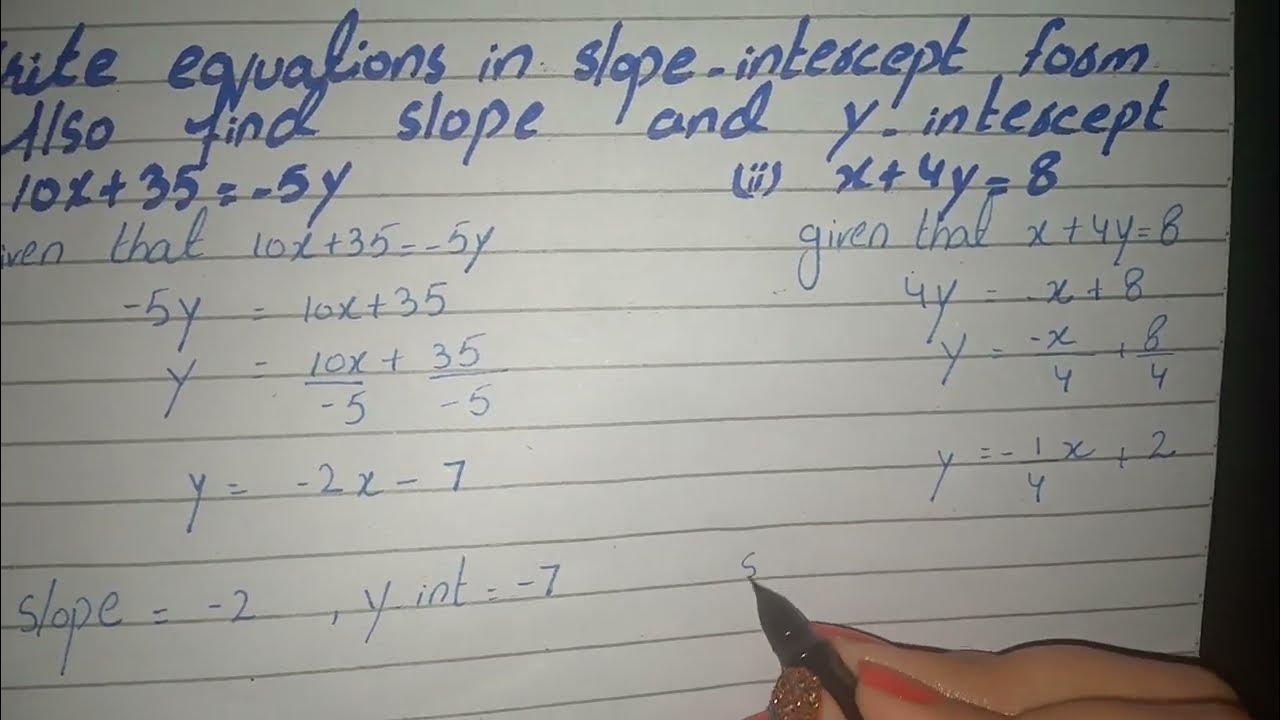 rite equations in slope-intercept form
Also find slope and y-intercept
10x+35=-5y
iven that 10x+35=-5y
-5y = 10x+35
y = 10x/-5 + 35/-5
y = -2x-7
slope = -2, y int = -7
(ii) x+4y=8
given that x+4y=8
4y = -x+8
y = -x/4 + 8/4
y = -1/4 x + 2
s